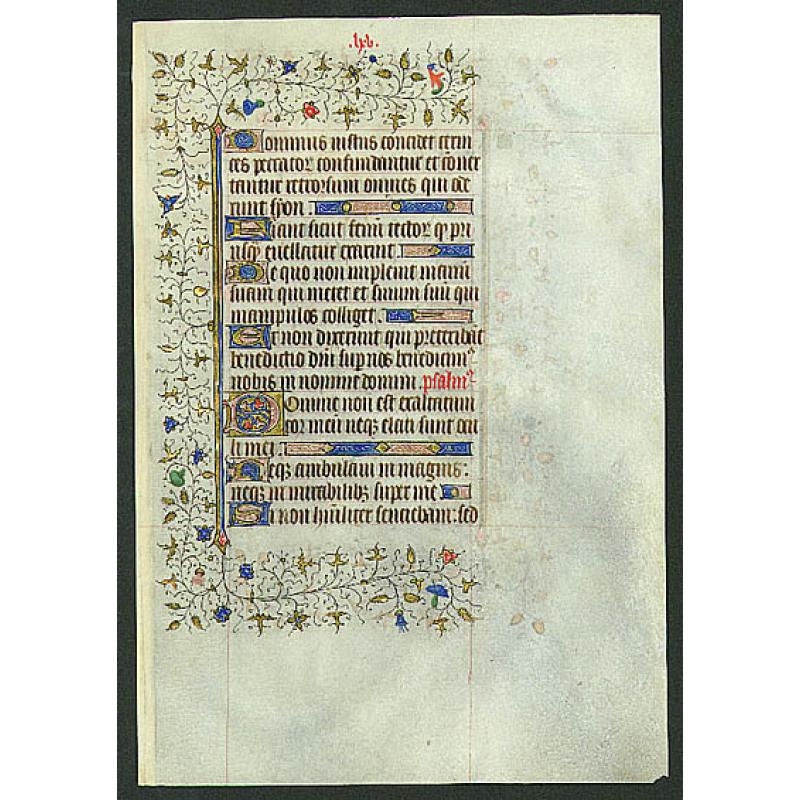 .lxv.
Dominus iustus concidet cervi
ces peccatorū confundantur et cōver
tantur retrorsum omnes qui ode
runt syon.
Fiant sicut fenū tectorū qd pri
usqȝ evellatur exaruit
De quo non implevit manū
suam qui metet et sinum suū qui
manipulos colliget.
Et non dixerunt qui preteribāt
benedictio dñi sup nos benediximꝰ
vobis in nomine domini. psalmꝰ
Domine non est exaltatum
cor meū neqȝ elati sunt ocu
li mei.
Neqȝ ambulavi in magnis:
neqȝ in mirabilibꝫ super me
Si non hūiliter sentiebam: sed